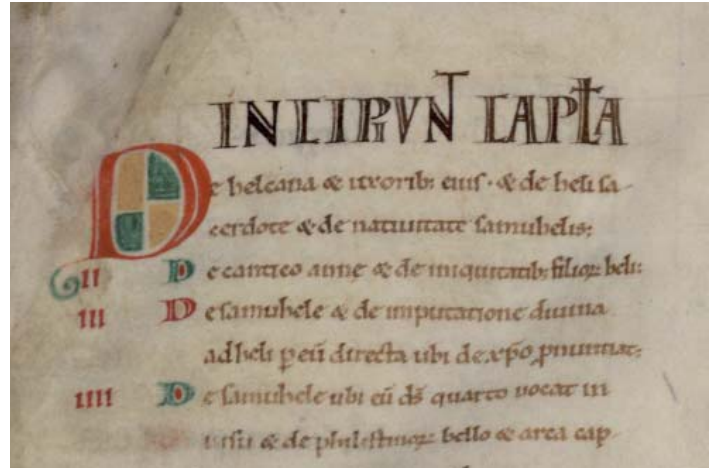 INCIPIUNT CAPĪTA
De helcana & uxorib; eius · & de heli sa-
cerdote & de natiuitate samuhelis;
II De cantico annę & de iniquitatib; filioꝝ heli;
III De samuhele & de imputatione diuina
ad heli p eū directa ubi de xp̄o ꝓnuntiat;
IIII De samuhele ubi eū ds̄ quarto uocat in
uisu & de philistinoꝝ bello & arca cap-